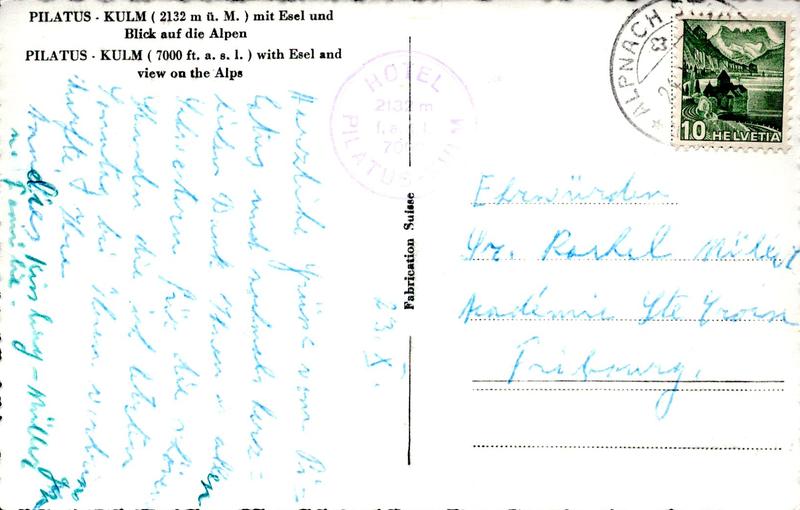 PILATUS - KULM ( 2132 m ü. M. ) mit Esel und
Blick auf die Alpen
PILATUS - KULM ( 7000 ft. a. s. l. ) with Esel and
view on the Alps
Herzliche Grüsse vom Pi-
latus und nochmals herz-
lichen Dank Ihnen u. allen
Schwestern für die schönen
Stunden die ich letzten
Sonntag bei Ihnen
durfte.
Familie
23. X.
HOTEL
2132 m
PILATUS-KULM
Fabrication Suisse
ALPNACH
10 HELVETIA
Ehrwürden
Sr. Rachel Müller
Académie Ste Croix
Fribourg.